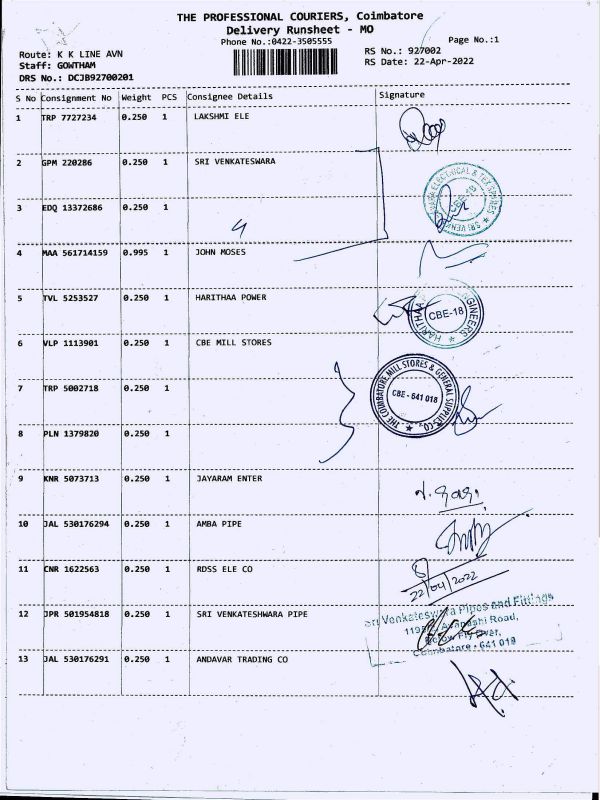 THE PROFESSIONAL COURIERS, Coimbatore
Delivery Runsheet - MO
Phone No.:0422-3505555
Page No.:1
Route: K K LINE AVN
RS No.: 927002
Staff: GOWTHAM
RS Date: 22-Apr-2022
DRS No.: DCJB92700201
S No Consignment No Weight PCS Consignee Details Signature
1 TRP 7727234 0.250 1 LAKSHMI ELE
2 GPM 220286 0.250 1 SRI VENKATESWARA
3 EDQ 13372686 0.250 1
4 MAA 561714159 0.995 1 JOHN MOSES
5 TVL 5253527 0.250 1 HARITHAA POWER
CBE-18
6 VLP 1113901 0.250 1 CBE MILL STORES
THE COIMBATORE MILL STORES & GENERAL SUPPLIES CO.,
CBE - 641 018
7 TRP 5002718 0.250 1
8 PLN 1379820 0.250 1
9 KNR 5073713 0.250 1 JAYARAM ENTER
10 JAL 530176294 0.250 1 AMBA PIPE
11 CNR 1622563 0.250 1 RDSS ELE CO
22/04/2022
12 JPR 501954818 0.250 1 SRI VENKATESHWARA PIPE
Sri Venkateswara Pipes and Fittings
Road,
Coimbatore - 641 018
13 JAL 530176291 0.250 1 ANDAVAR TRADING CO